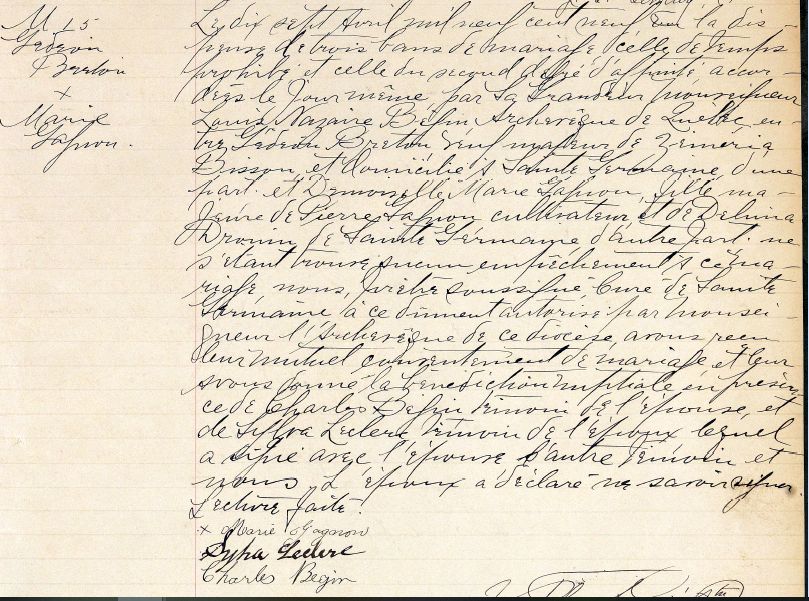 M 15
Gédéon
Breton
x
Marie
Gagnon.
Le dix sept Avril mil neuf cent neuf vu la dis-
pense de trois bans de mariage celle de temps
prohibé et celle du second degré d'affinité accor-
dées le jour même par Sa Grandeur Monseigneur
Louis Nazaire Bégin Archevêque de Québec, en-
tre Gédéon Breton veuf majeur de Zimeria
Bisson, et domicilié à Sainte Germaine, d'une
part. et Demoiselle Marie Gagnon, fille ma-
jeure de Pierre Gagnon cultivateur et de Delima
Drouin de Sainte Germaine d'autre part. ne
s'étant trouvé aucun empêchement à ce ma-
riage nous, prêtre soussigné Curé de Sainte
Germaine à ce dument autorisé par monsei-
gneur l'Archevêque de ce diocèse, avons reçu
leur mutuel consentement de mariage et leur
avons donné la bénédiction nuptiale en présen-
ce de Charles Bégin témoin de l'épouse, et
de Sylva Leclerc témoin de l'époux lequel
a signé avec l'épouse l'autre témoin et
nous L'époux a déclaré ne savoir signer.
Lecture faite.
x Marie Gagnon
Leclerc
Charles Begin